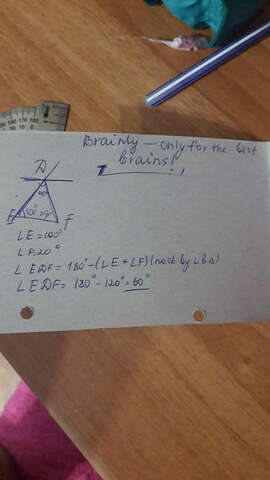 Brainly — only for the best
brains!
D
E 100° 20° F
∠E=100°
∠F=20°
∠EDF = 180°-(∠E+∠F)
∠EDF = 180°-120°=60°